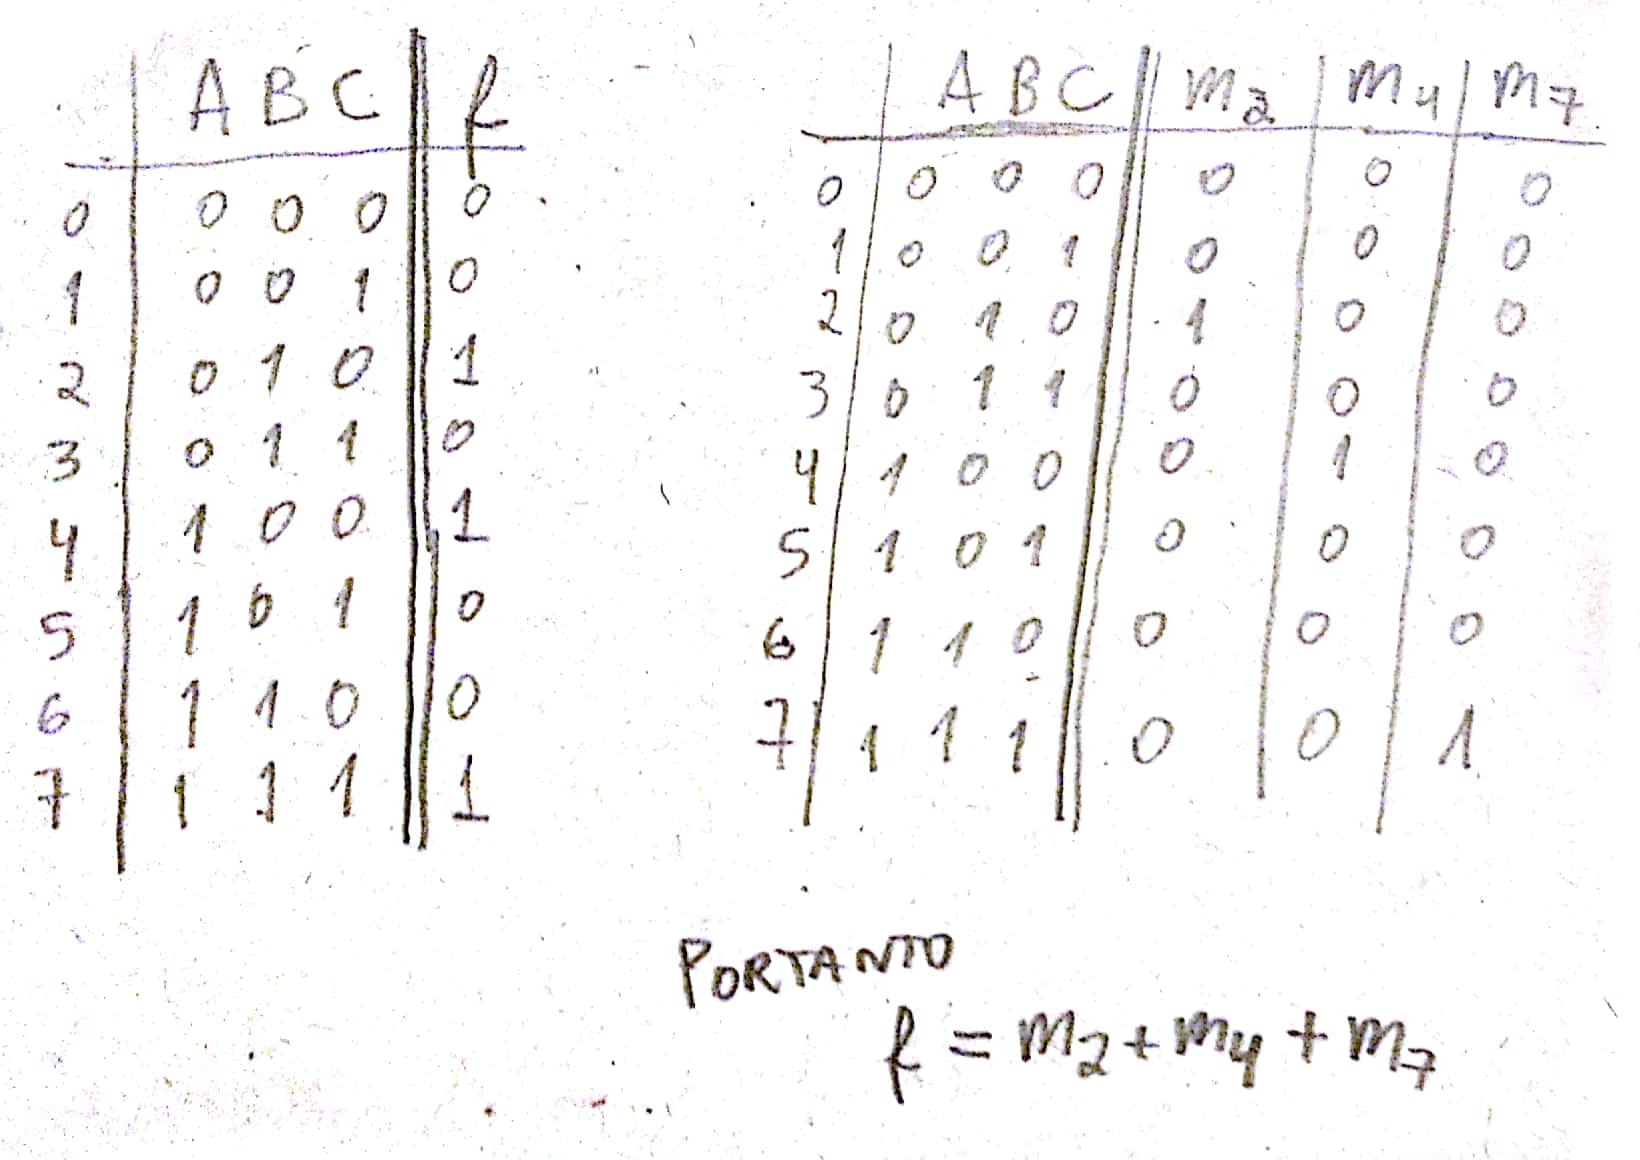 A B C f
0 0 0 0 0
1 0 0 1 0
2 0 1 0 1
3 0 1 1 0
4 1 0 0 1
5 1 0 1 0
6 1 1 0 0
7 1 1 1 1
A B C m2 m4 m7
0 0 0 0 0 0 0
1 0 0 1 0 0 0
2 0 1 0 1 0 0
3 0 1 1 0 0 0
4 1 0 0 0 1 0
5 1 0 1 0 0 0
6 1 1 0 0 0 0
7 1 1 1 0 0 1
PORTANTO
f = m2 + m4 + m7